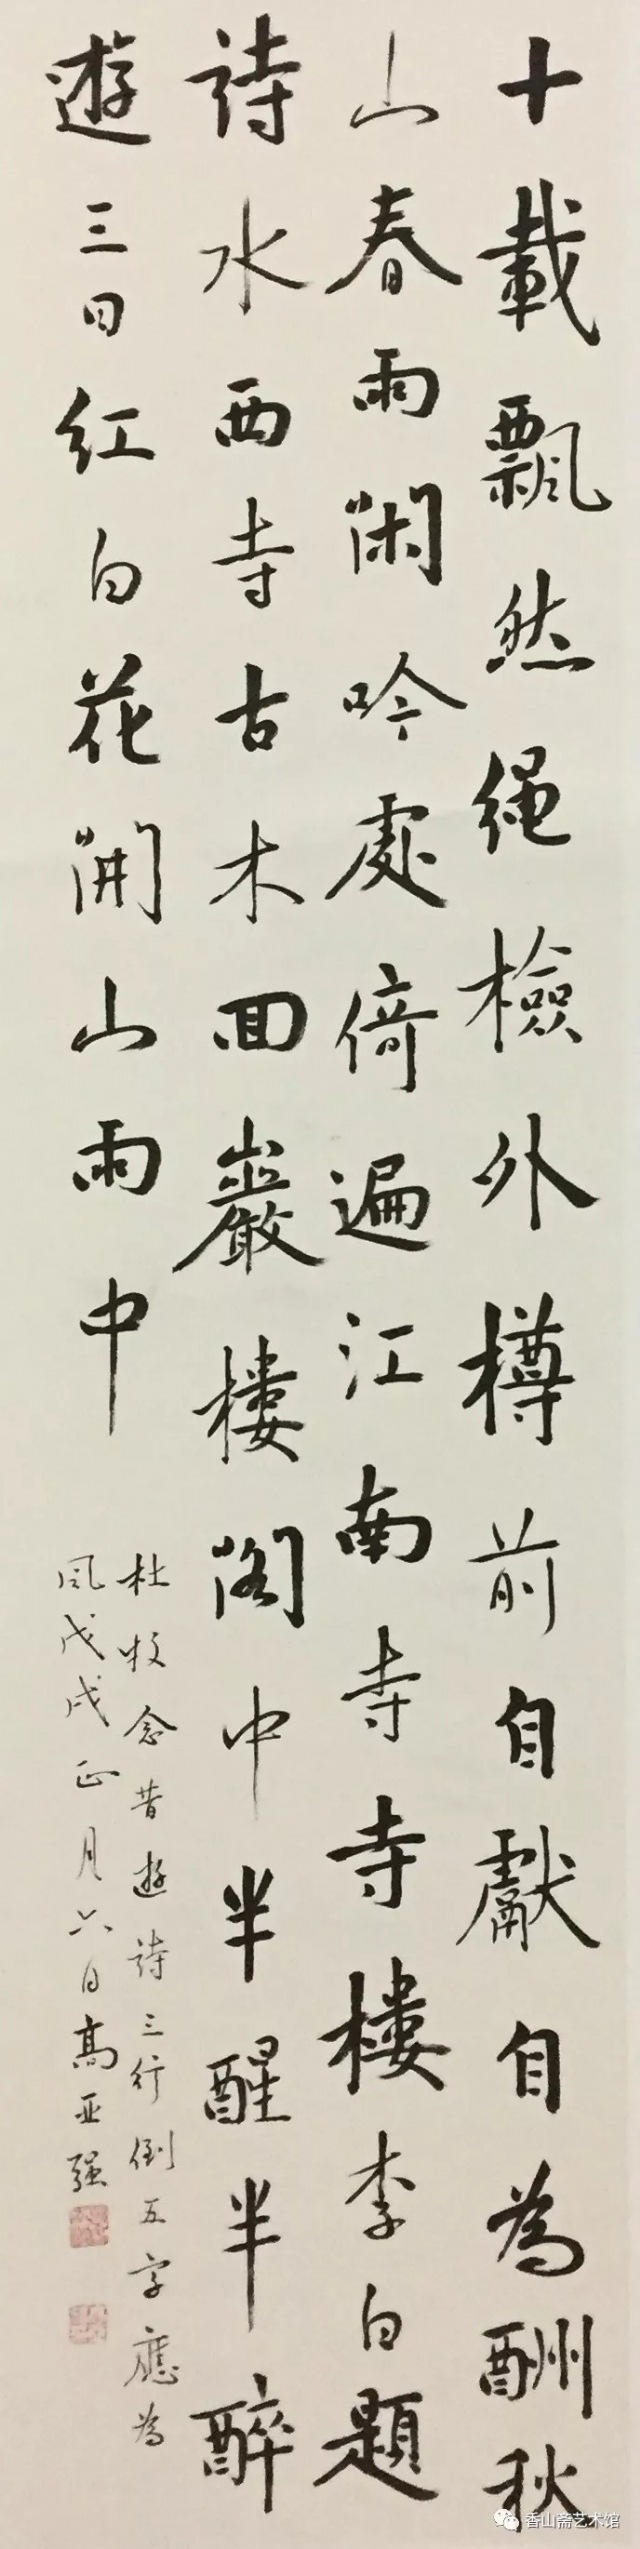 十載飄然繩檢外樽前自獻自為酬秋
山春雨閑吟處倚遍江南寺寺樓李白題
詩水西寺古木回巖樓閣中半醒半醉
遊三日紅白花開山雨中
杜牧念昔遊詩三行倒五字應為
風戊戌正月六日高亚强
香山斋艺术馆